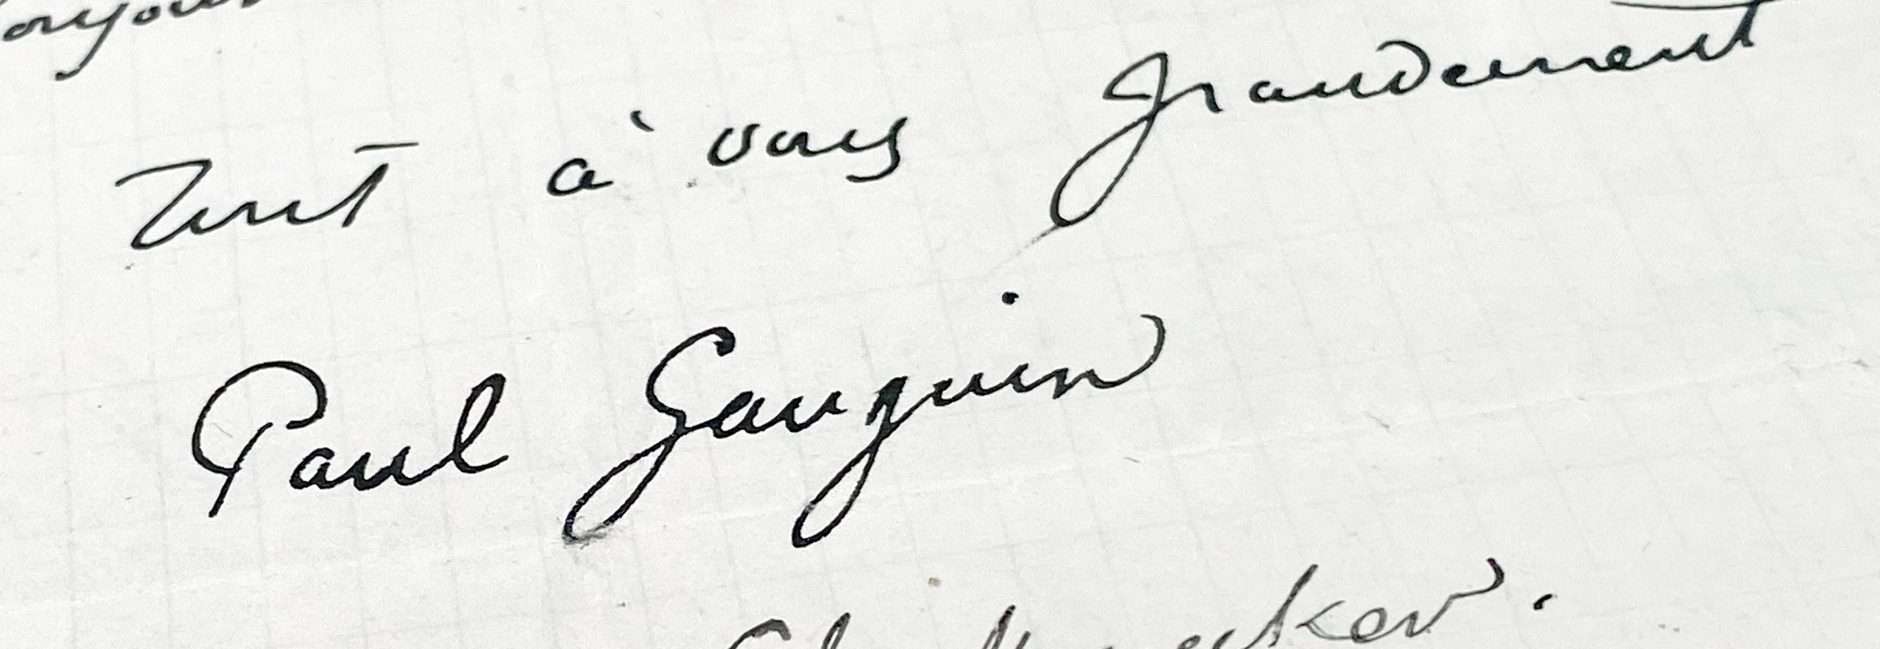 Tout à vous grandement
Paul Gauguin